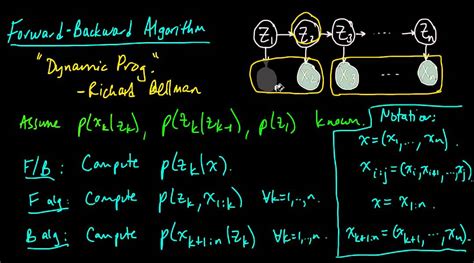 Forward-Backward Algorithm
"Dynamic Prog."
- Richard Bellman
Z₁ Z₂ Z₃ ... Zₙ
X₃ ... Xₙ
Assume p(xₖ|zₖ), p(zₖ|zₖ₋₁), p(z₁) known.
F/B: Compute p(zₖ|x).
F alg: Compute p(zₖ, x₁:ₖ) ∀k=1,..,n.
B alg: Compute p(xₖ₊₁:ₙ|zₖ) ∀k=1,..,n.
Notation:
x=(x₁,..., xₙ)
xᵢ:ⱼ=(xᵢ,xᵢ₊₁,...,xⱼ)
x = x₁:ₙ
xₖ₊₁:ₙ=(xₖ₊₁,..., xₙ)